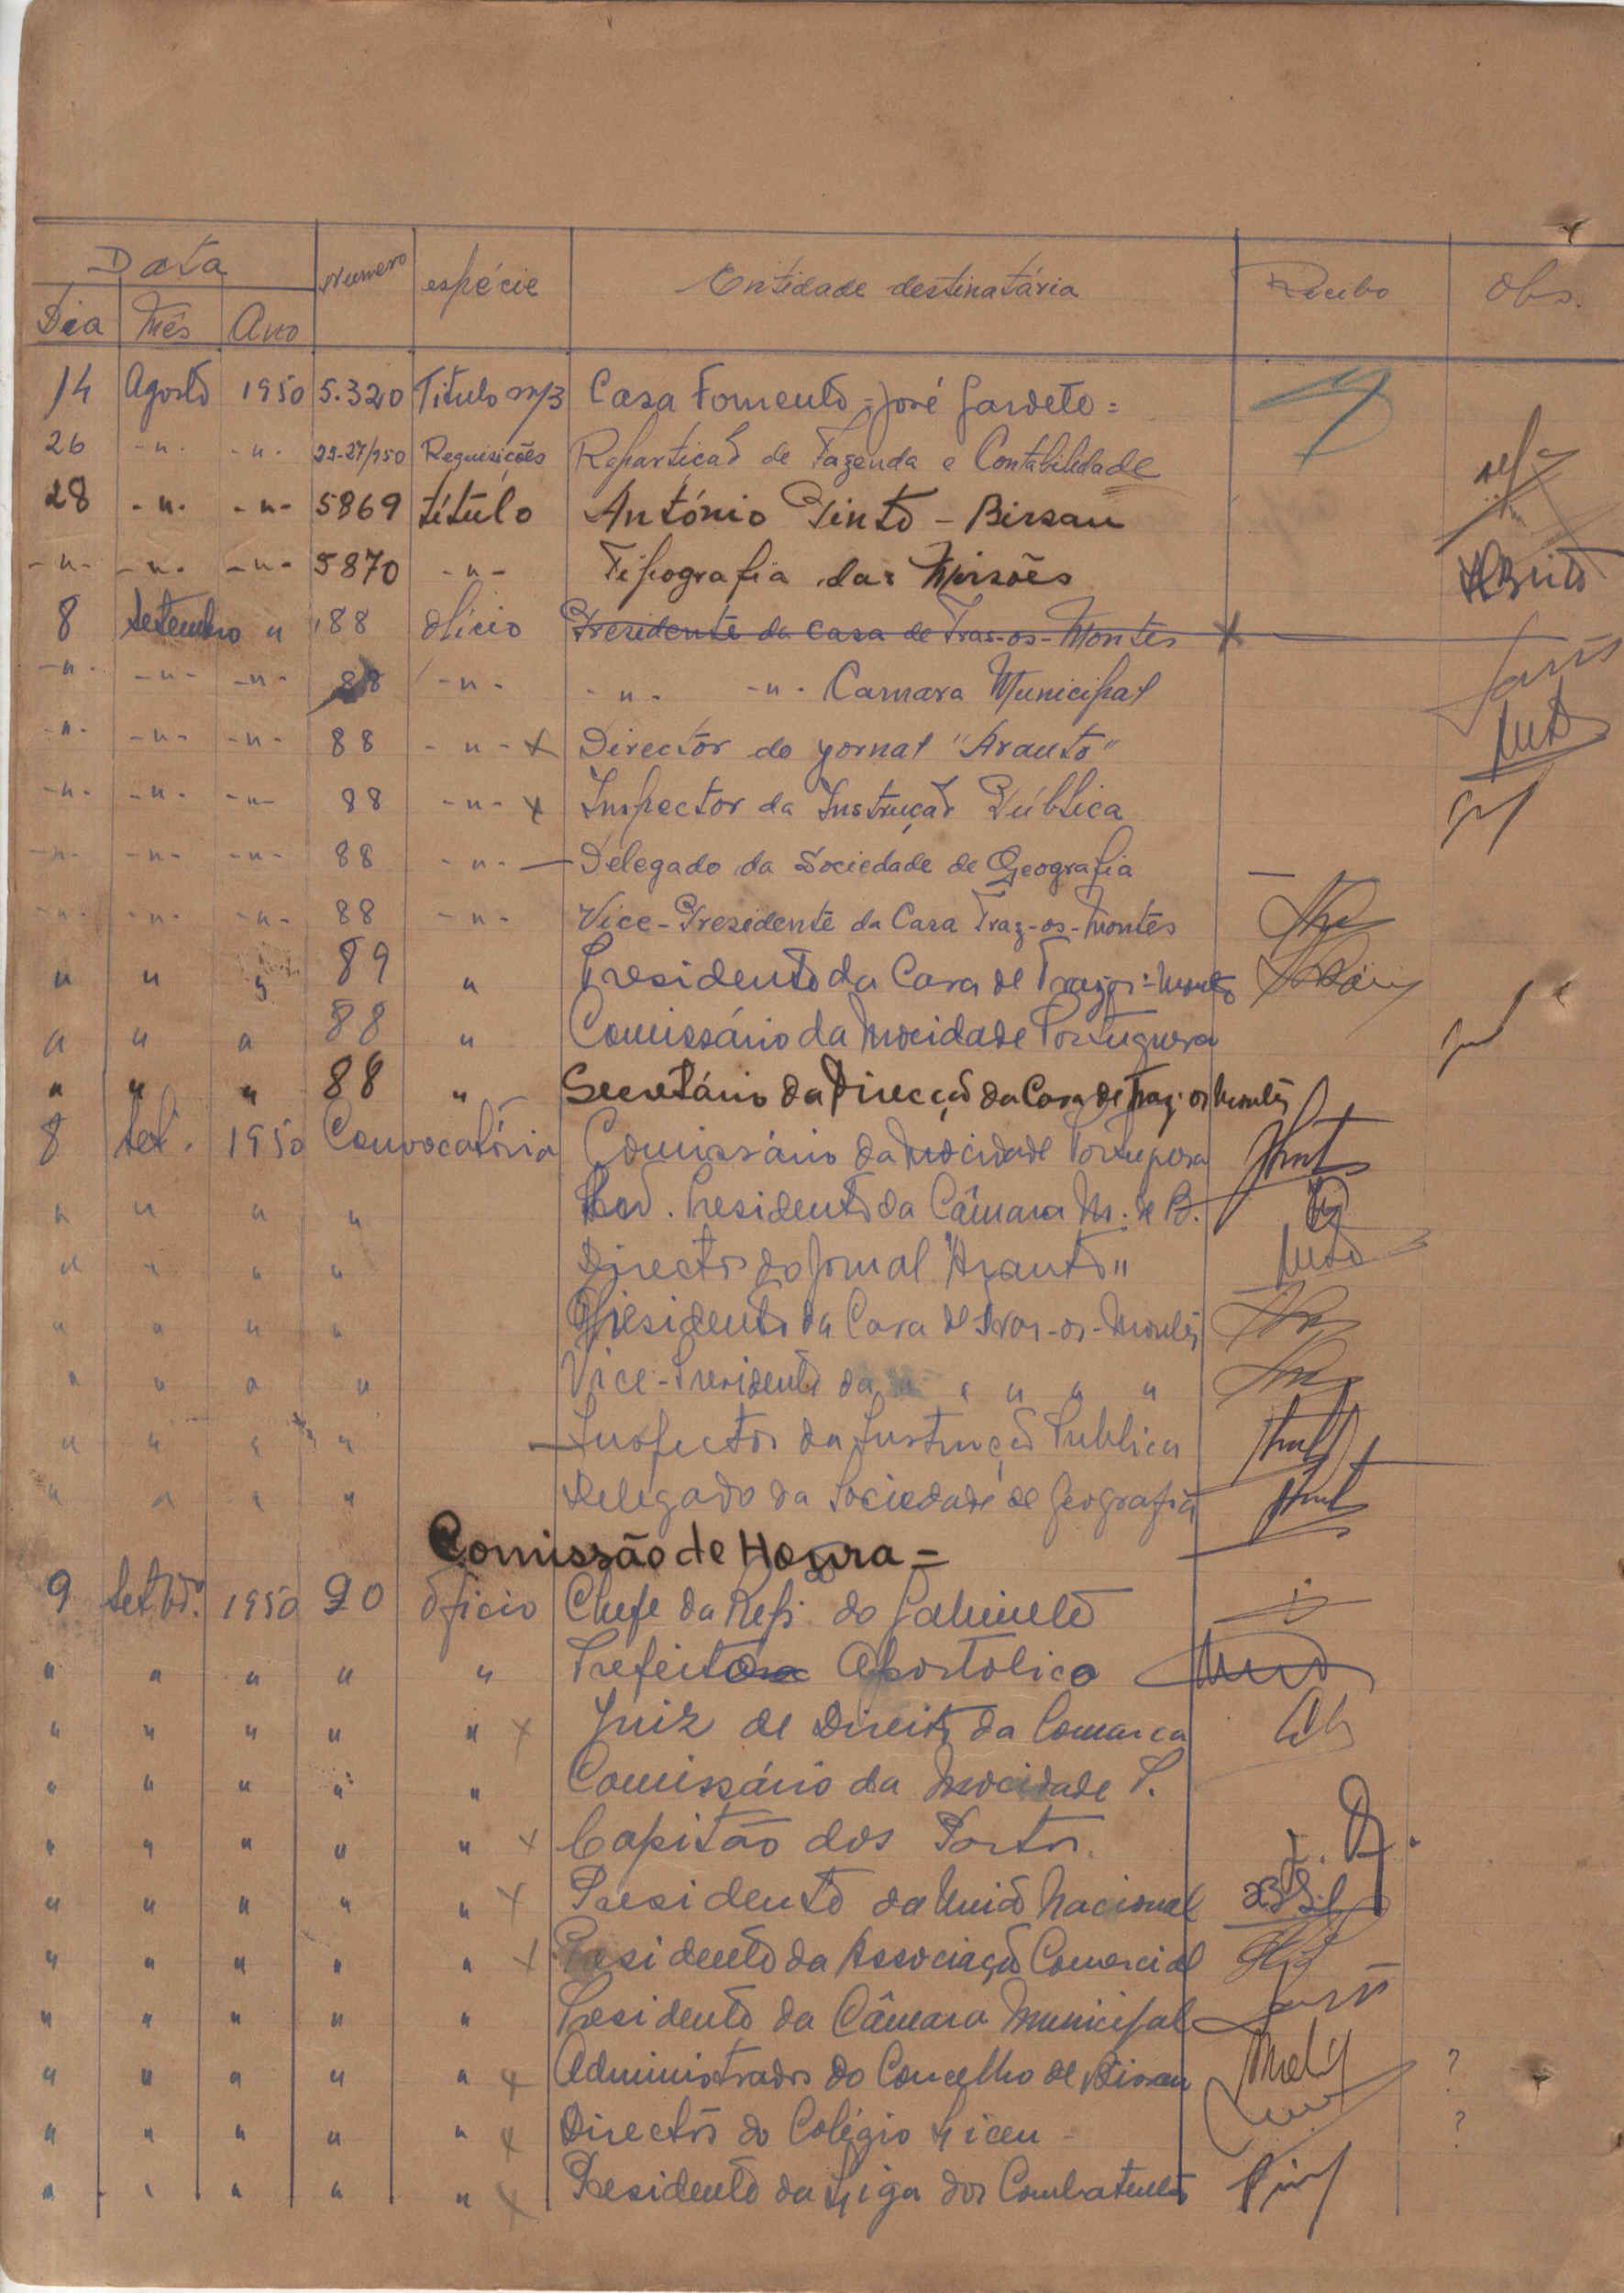 Data Numero espécie Entidade destinatária Recibo Obs.
Dia Mês Ano
14 Agosto 1950 5.320 Titulo m/3 Casa Fomento = José Gardete =
26 -"- -"- 25-27/950 Requisições Repartição de Fazenda e Contabilidade
28 -"- -"- 5869 título António Pinto - Bissau
-"- -"- -"- 5870 -"- Tipografia das Missões ABrito
8 Setembro " 88 ofício Presidente da Casa de Tras-os-Montes x
-"- -"- -"- 88 -"- -"- -"- Camara Municipal
-"- -"- -"- 88 -"- x Director do jornal "Arauto"
-"- -"- -"- 88 -"- x Inspector da Instrução Pública
-"- -"- -"- 88 -"- — Delegado da Sociedade de Geografia —
-"- -"- -"- 88 -"- Vice-Presidente da Casa Traz-os-Montes
" " " 89 " Presidente da Casa de Trazos-Montes
" " " 88 " Comissário da Mocidade Portuguesa
" " " 88 " Secretário da Direcção da Casa de Traz-os Montes
8 Set. 1950 Convocatória Comissário da Mocidade Portuguesa
" " " " Presidente da Câmara M. de B.
" " " " Director do Jornal "Arauto"
" " " " Presidente da Casa de Tras-os-Montes
" " " " Vice-Presidente da " " " " "
" " " " — Inspector da Instrução Publica
" " " " Delegado da Sociedade de Geografia
Comissão de Honra =
9 Setbrº. 1950 90 Ofício Chefe da Rep. do Gabinete
" " " " " Prefeito Apostolico
" " " " " x Juiz de Direito da Comarca
" " " " " Comissário da Mocidade P.
" " " " " x Capitão dos Portos.
" " " " " x Presidente da União Nacional
" " " " " x Presidente da Associação Comercial
" " " " " Presidente da Câmara Municipal
" " " " " x Administrador do Concelho de Bissau ?
" " " " " x Director do Colégio Liceu - ?
" " " " " x Presidente da Liga dos Combatentes